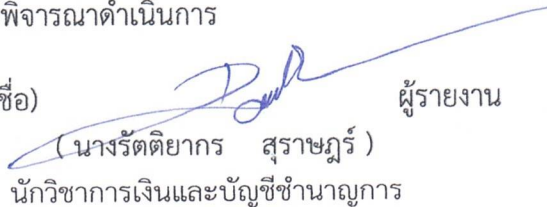 พิจารณาดำเนินการ
ชื่อ) ผู้รายงาน
( นางรัตติยากร สุราษฎร์ )
นักวิชาการเงินและบัญชีชำนาญการ